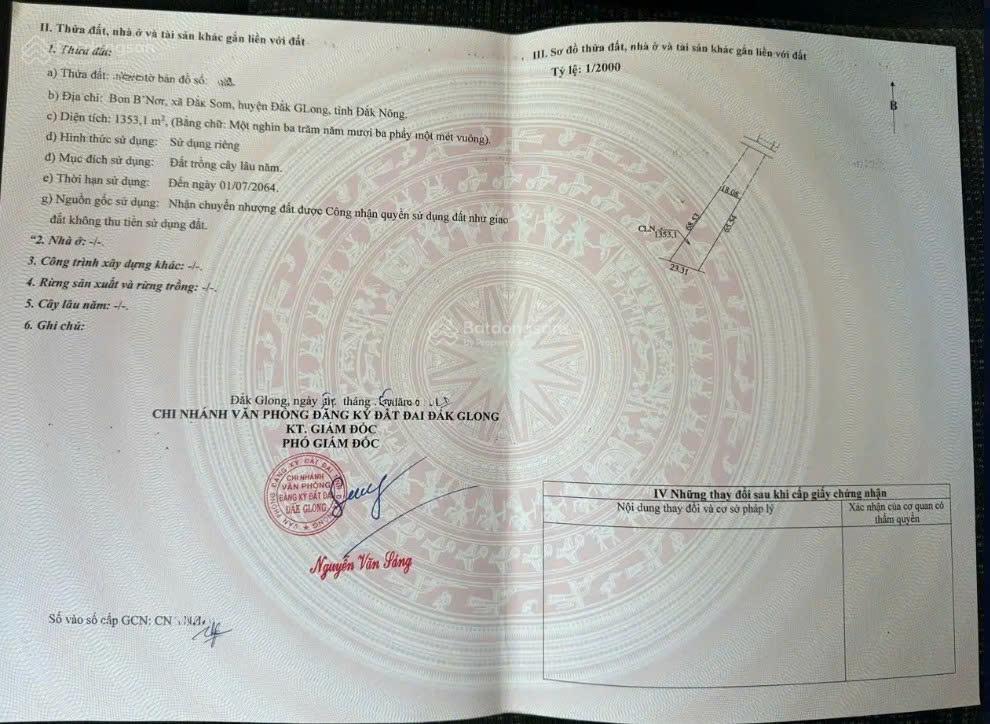 II. Thửa đất, nhà ở và tài sản khác gắn liền với đất
1. Thửa đất:
a) Thửa đất: tờ bản đồ số:
b) Địa chỉ: Bon B'Nơr, xã Đắk Som, huyện Đắk GLong, tỉnh Đắk Nông.
c) Diện tích: 1353,1 m², (Bằng chữ: Một nghìn ba trăm năm mươi ba phẩy một mét vuông).
d) Hình thức sử dụng: Sử dụng riêng
đ) Mục đích sử dụng: Đất trồng cây lâu năm.
e) Thời hạn sử dụng: Đến ngày 01/07/2064.
g) Nguồn gốc sử dụng: Nhận chuyển nhượng đất được Công nhận quyền sử dụng đất như giao
đất không thu tiền sử dụng đất.
"2. Nhà ở: -/-.
3. Công trình xây dựng khác: -/-.
4. Rừng sản xuất và rừng trồng: -/-.
5. Cây lâu năm: -/-.
6. Ghi chú:
Đắk Glong, ngày tháng
CHI NHÁNH VĂN PHÒNG ĐĂNG KÝ ĐẤT ĐAI ĐẮK GLONG
KT. GIÁM ĐỐC
PHÓ GIÁM ĐỐC
CHI NHÁNH
VĂN PHÒNG
ĐĂNG KÝ ĐẤT ĐAI
ĐẮK GLONG
Nguyễn Văn Sáng
Số vào sổ cấp GCN: CN
III. Sơ đồ thửa đất, nhà ở và tài sản khác gắn liền với đất
Tỷ lệ: 1/2000
B
18.08
68.53
65.54
CLN
1353,1
23.31
Batdongsan
by PropertyGuru
IV Những thay đổi sau khi cấp giấy chứng nhận
Nội dung thay đổi và cơ sở pháp lý
Xác nhận của cơ quan có
thẩm quyền